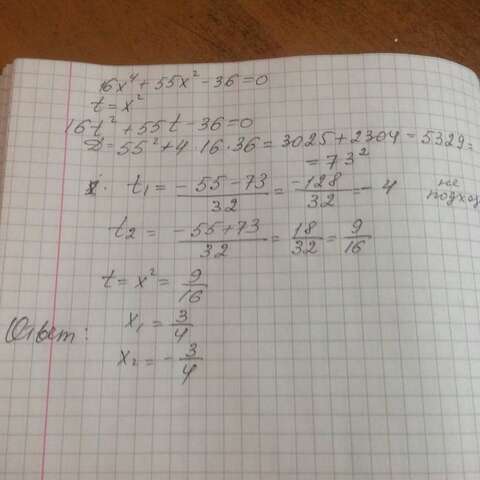 16x⁴+55x²-36=0
t=x²
16t²+55t-36=0
D=55²+4·16·36=3025+2304=5329=
=73²
t₁=(-55-73)/32=-128/32=-4 не подход
t₂=(-55+73)/32=18/32=9/16
t=x²=9/16
Ответ: x₁=3/4
x₂=-3/4